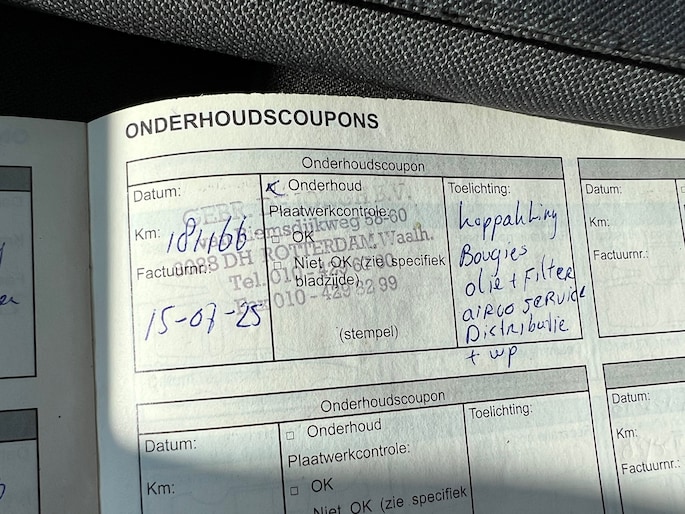 ONDERHOUDSCOUPONS
Onderhoudscoupon
Datum:
Km: 181166
Factuurnr.:
15-07-25
Onderhoud
Plaatwerkcontrole:
OK
Niet OK (zie specifiek
bladzijde)
(stempel)
ROTTERDAM Waalh.
Tel. 010 -
Fax 010 - 429 62 99
Toelichting:
koppakking
Bougies
olie + Filter
airco service
Distributie
+ wp
Datum:
Km:
Factuurnr.:
Onderhoudscoupon
Datum:
Km:
□ Onderhoud
Plaatwerkcontrole:
□ OK
Niet OK (zie specifiek
Toelichting:
Datum:
Km:
Factuurnr.: